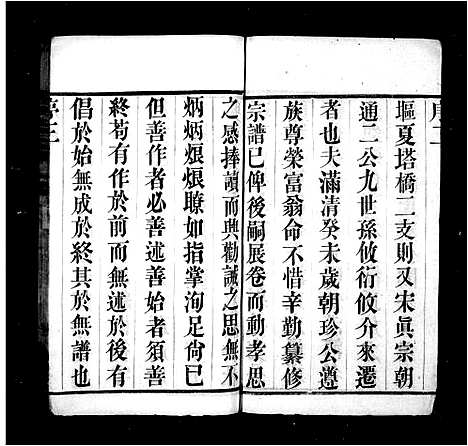 序二
堰夏塔橋二支則又宋眞宗朝
通二公九世孫攸衍攸介來遷
者也夫滿清癸未歲朝珍公遵
族尊榮富翁命不惜辛勤纂修
宗譜已俾後嗣展卷而動孝思
之感捧讀而興勸誡之思無不
炳炳烺烺瞭如指掌洵足尙已
但善作者必善述善始者須善
終苟有作於前而無述於後有
倡於始無成於終其於無譜也
序三